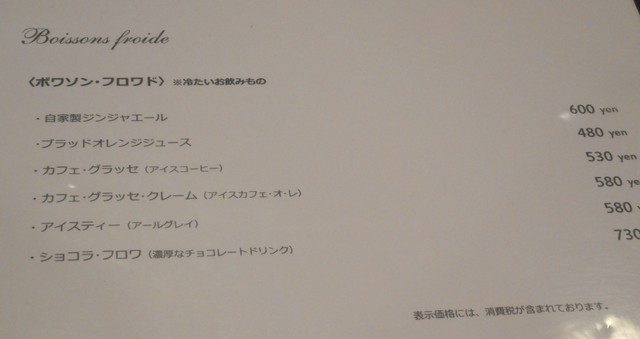 Boissons froide
〈ボワソン・フロワド〉 ※冷たいお飲みもの
・自家製ジンジャエール 600 yen
・ブラッドオレンジジュース 480 yen
・カフェ・グラッセ（アイスコーヒー） 530 yen
・カフェ・グラッセ・クレーム（アイスカフェ・オ・レ） 580 ye
・アイスティー（アールグレイ） 580
・ショコラ・フロワ（濃厚なチョコレートドリンク） 730
表示価格には、消費税が含まれております。